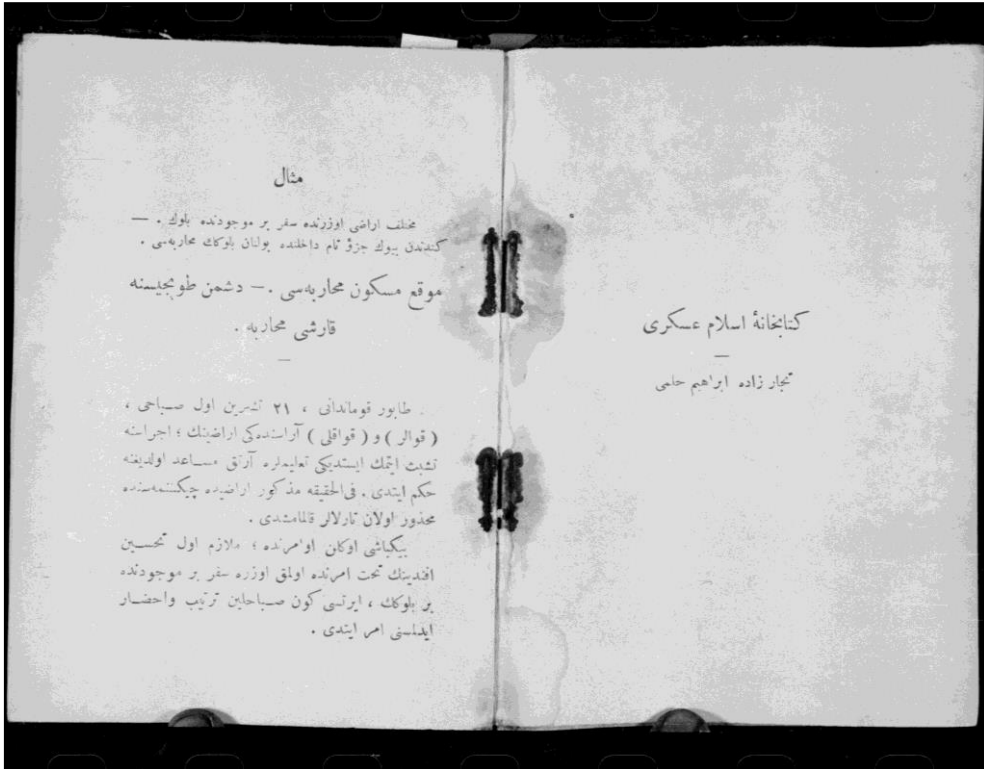 كتابخانهٔ اسلام عسكرى
تجار زاده ابراهيم حلمى
مثال
مختلف اراضى اوزرنده سفر بر موجودنده بلوك . —
كندندن بيوك جزؤ تام داخلنده بولنان بلوكك محاربه‌سى .
موقع مسكون محاربه‌سى . — دشمن طوپجيسنه
قارشى محاربه .
طابور قوماندانى ، ٢١ تشرين اول صباحى ،
( قوالر ) و ( قواقلى ) آراسنده‌كى اراضينك ؛ اجراسنه
تشبث ايتمك ايستديكى تعليملره آرتق مساعد اولديغنه
حكم ايتدى . فى‌الحقيقه مذكور اراضيده چيكننمه‌سنده
محذور اولان تارلالر قالمامشدى .
بيكباشى اوكان اوامرنده ؛ ملازم اول تحسين
افندينك تحت امرنده اولمق اوزره سفر بر موجودنده
بر بلوكك ، ايرتسى كون صباحلين ترتيب واحضار
ايدلسنى امر ايتدى .